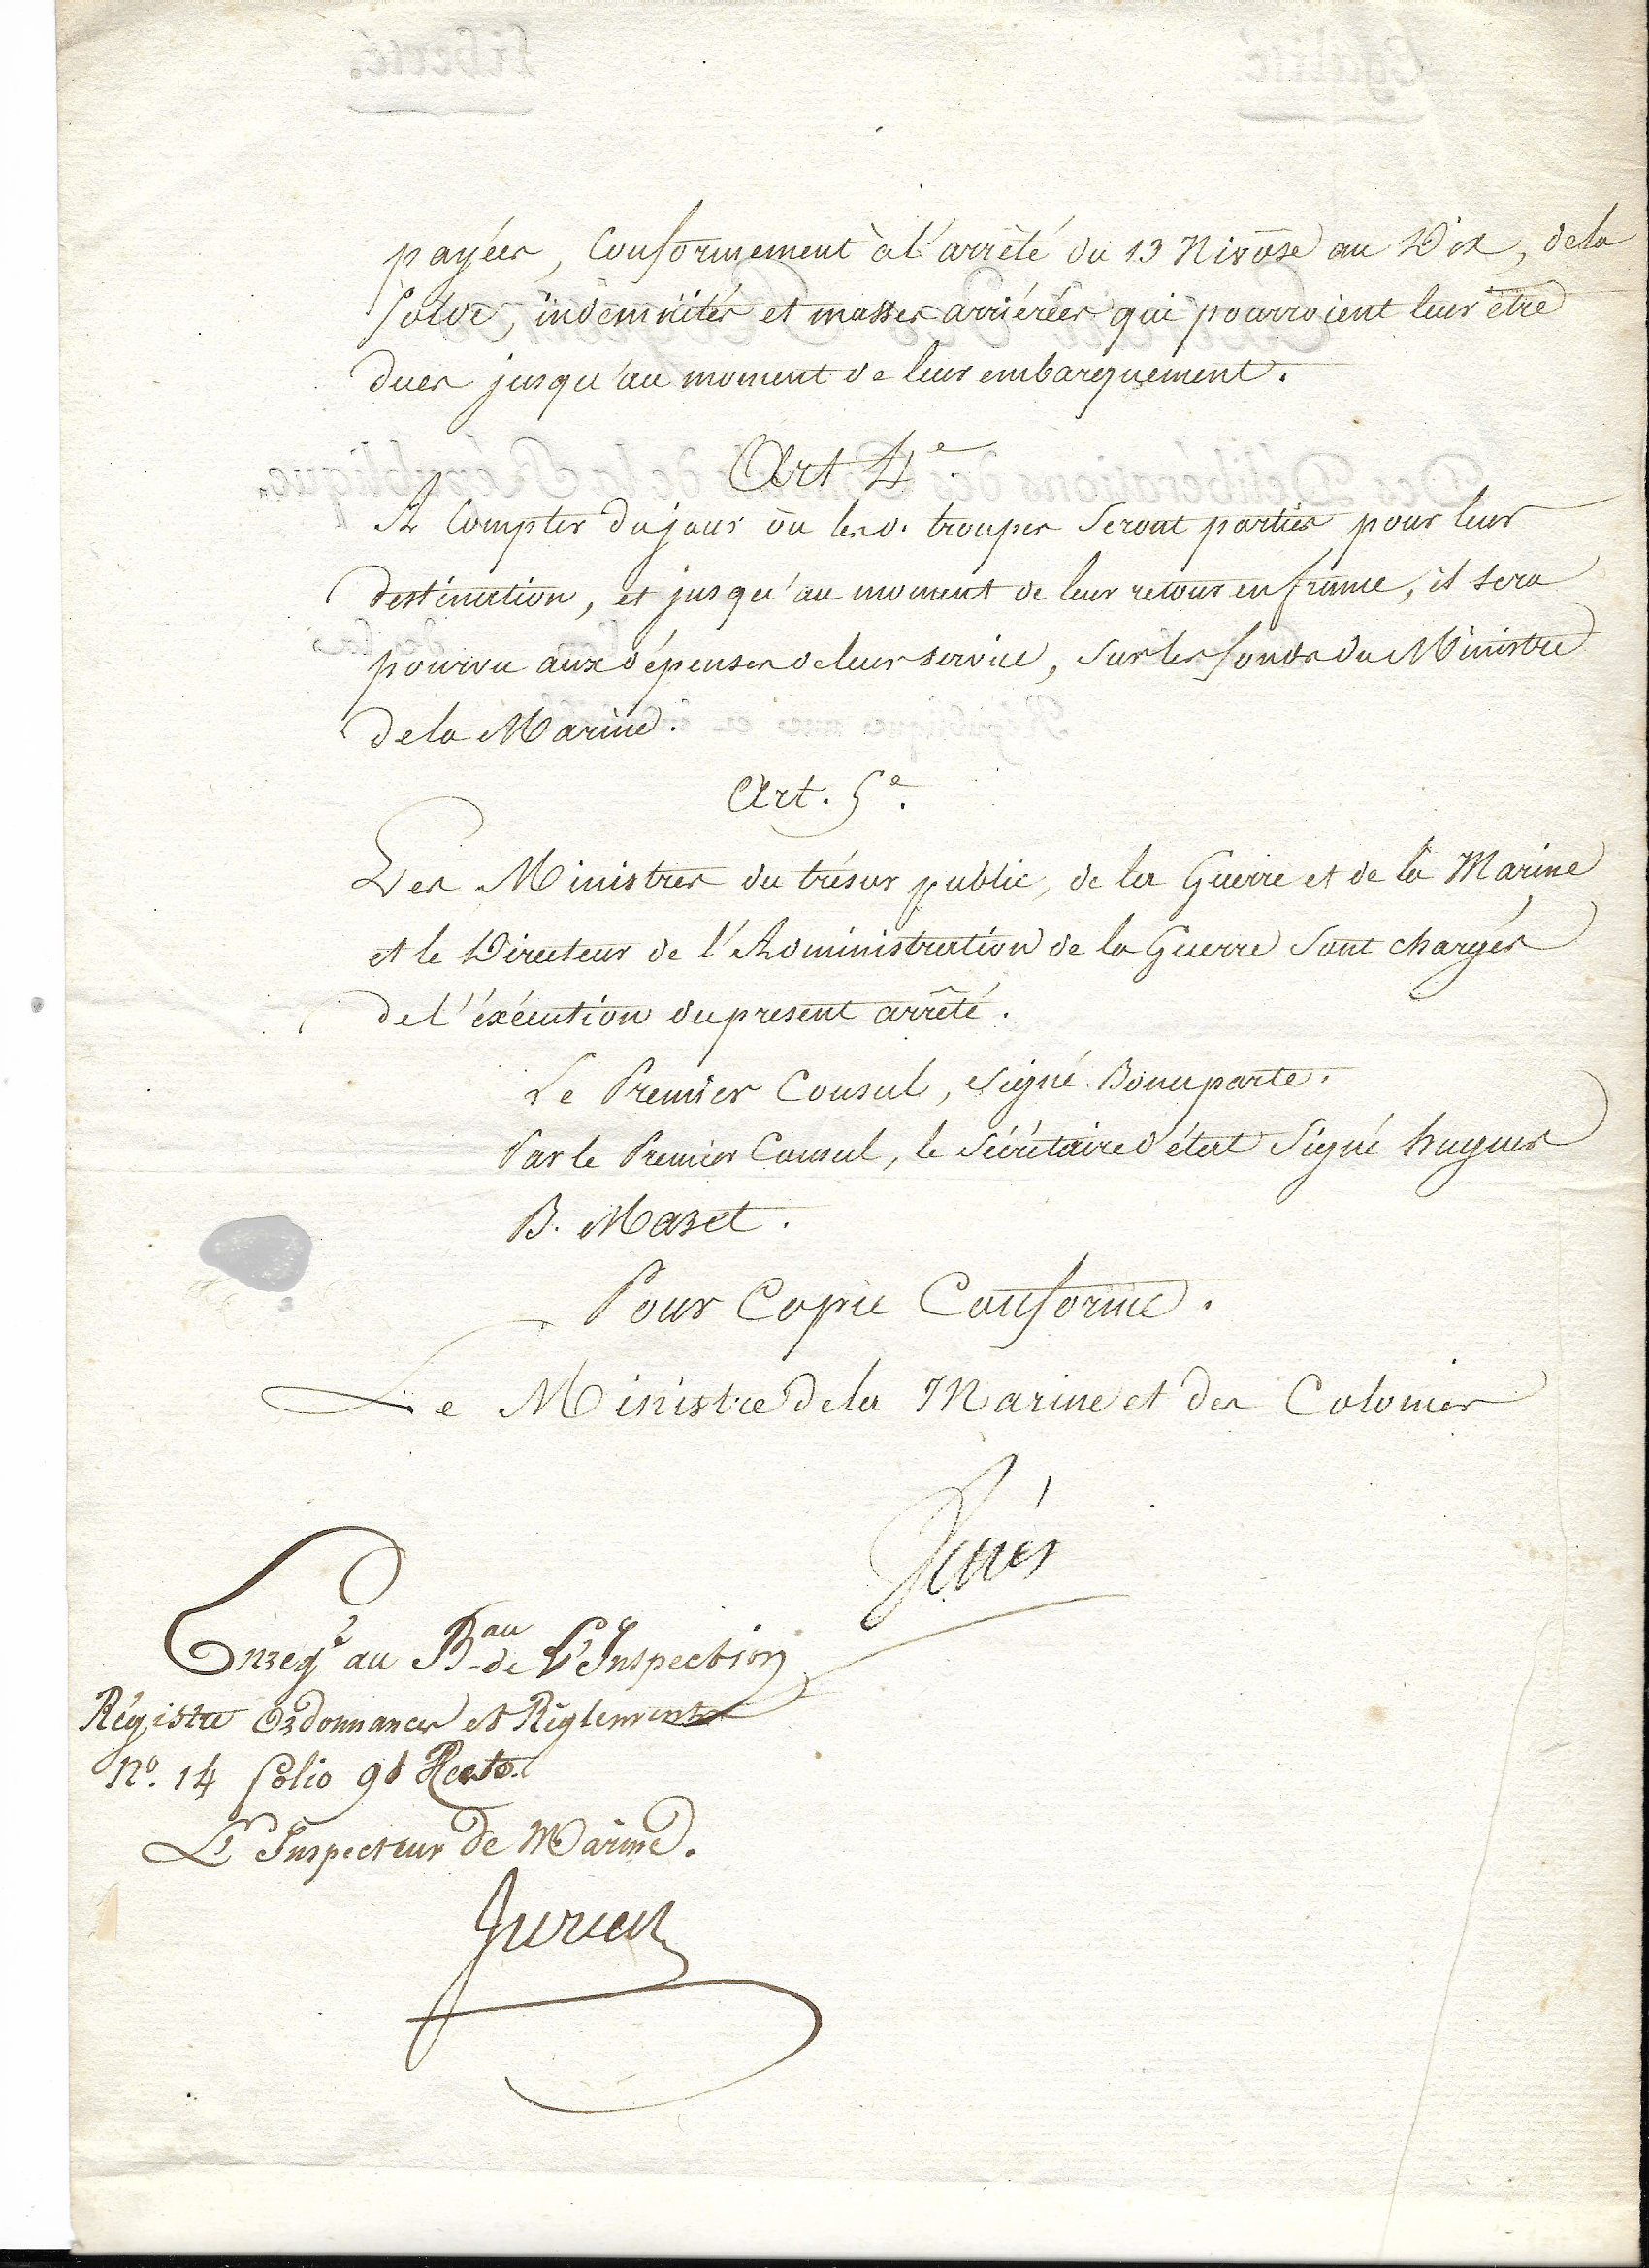 payées, Conformement à l'arrêté du 13 Nivôse an Dix, de la
solde, indemnités et masses arriérées qui pourroient leur être
dues jusqu'au moment de leur embarquement.
Art 4e.
A Compter du jour où lesd. troupes seront parties pour leur
destination, et jusqu'au moment de leur retour en france, il sera
pourvu aux dépenses de leur service, sur les fonds du Ministre
de la Marine.
Art. 5e.
Les Ministres du trésor public, de la Guerre et de la Marine
et le Directeur de l'Administration de la Guerre sont chargés
de l'éxécution du present arrêté.
Le Premier Consul, signé Bonaparte.
Par le Premier Consul, le Sécrétaire d'état signé hugues
B. Maret.
Pour Copie Conforme.
Le Ministre de la Marine et des Colonies
Enregé au Bau de L'Inspection
Régistre Ordonnances et Règlements
No. 14 folio 91 Recto.
L'Inspecteur de Marine.
Jurien